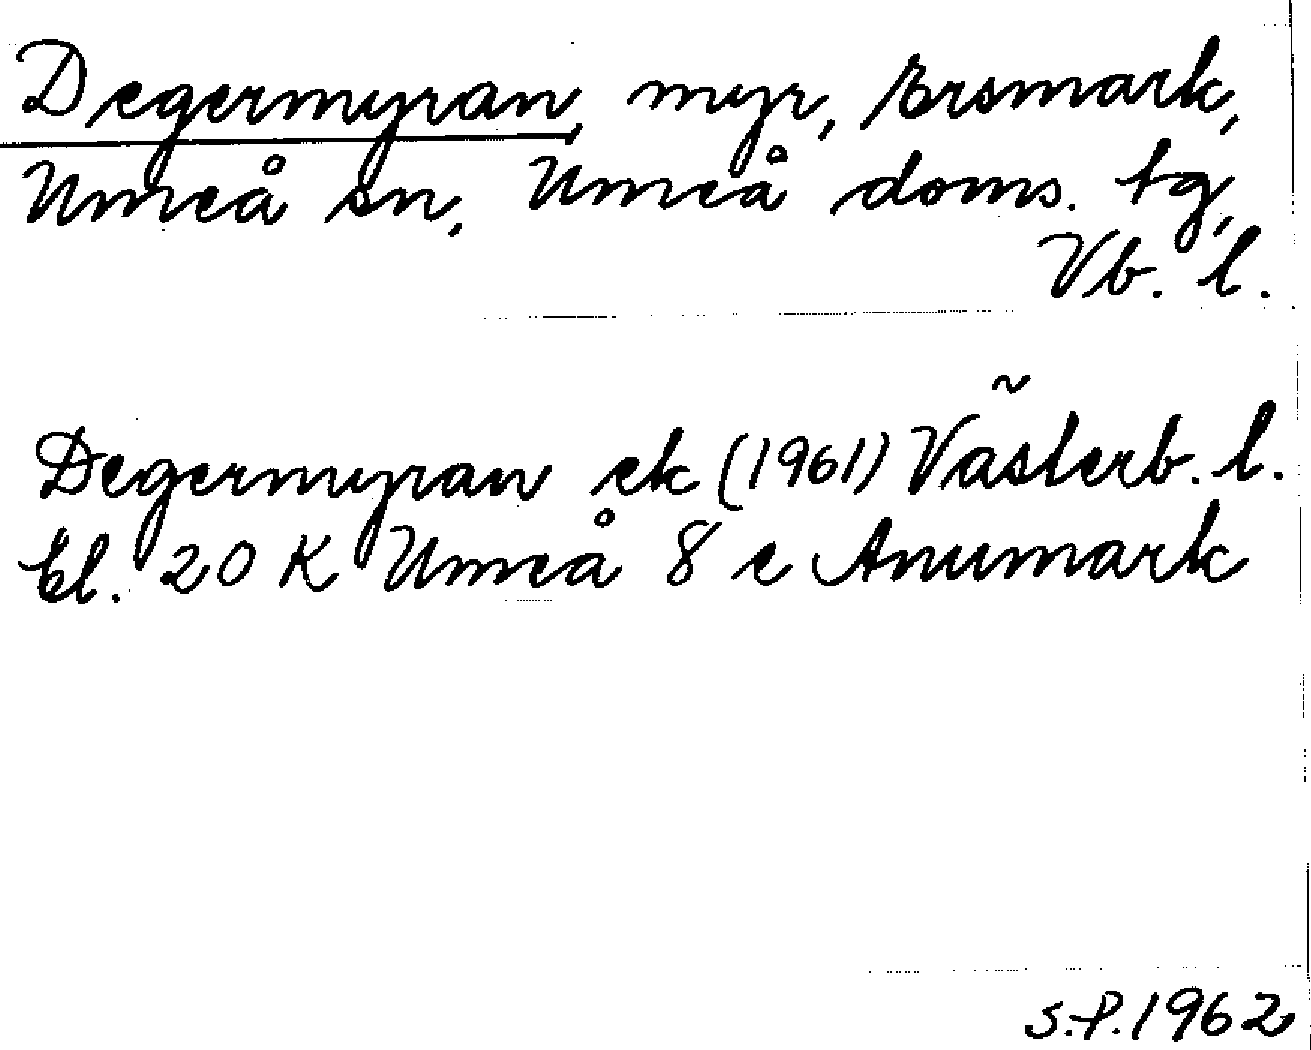 Degermyran, myr, Ersmark,
Umeå sn, Umeå doms. tg,
Vb. l.
Degermyran ek (1961) Västerb. l.
bl. 20 K Umeå 8 e Anumark
S.P. 1962